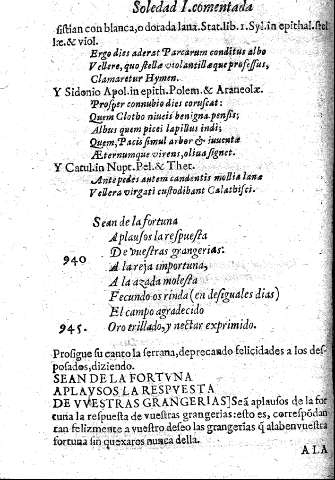 Soledad I. comentada
sistian con blanca, o dorada lana. Stat. lib. 1. Syl. in epithal. stel
læ. & viol.
Ergo dies aderat Parcarum conditus albo
Vellere, quo stellæ violantillæque professus,
Clamaretur Hymen.
Y Sidonio Apol. in epith. Polem. & Araneolæ.
Prosper connubio dies coruscat:
Quem Clotho niueis benigna pensis;
Albus quem picei lapillus indi;
Quem, Pacis simul arbor & iuuentæ
Æternumque virens, oliua signet.
Y Catul. in Nupt. Pel. & Thet.
Ante pedes autem candentis mollia lanæ
Vellera virgati custodibant Calathisci.
Sean de la fortuna
Aplausos la respuesta
940 De vuestras grangerias.
A la reja importuna,
A la azada molesta
Fecundo os rinda (en desiguales dias)
El campo agradecido
945. Oro trillado, y nectar exprimido.
Prosigue su canto la serrana, deprecando felicidades a los des-
posados, diziendo.
SEAN DE LA FORTVNA
APLAVSOS LA RESPVESTA
DE VVESTRAS GRANGERIAS] Seā aplausos de la for
tuna la respuesta de vuestras grangerias: esto es, correspōdan
tan felizmente a vuestro deseo las grangerias q̄ alaben vuestra
fortuna sin quexaros nunca della.
A LA